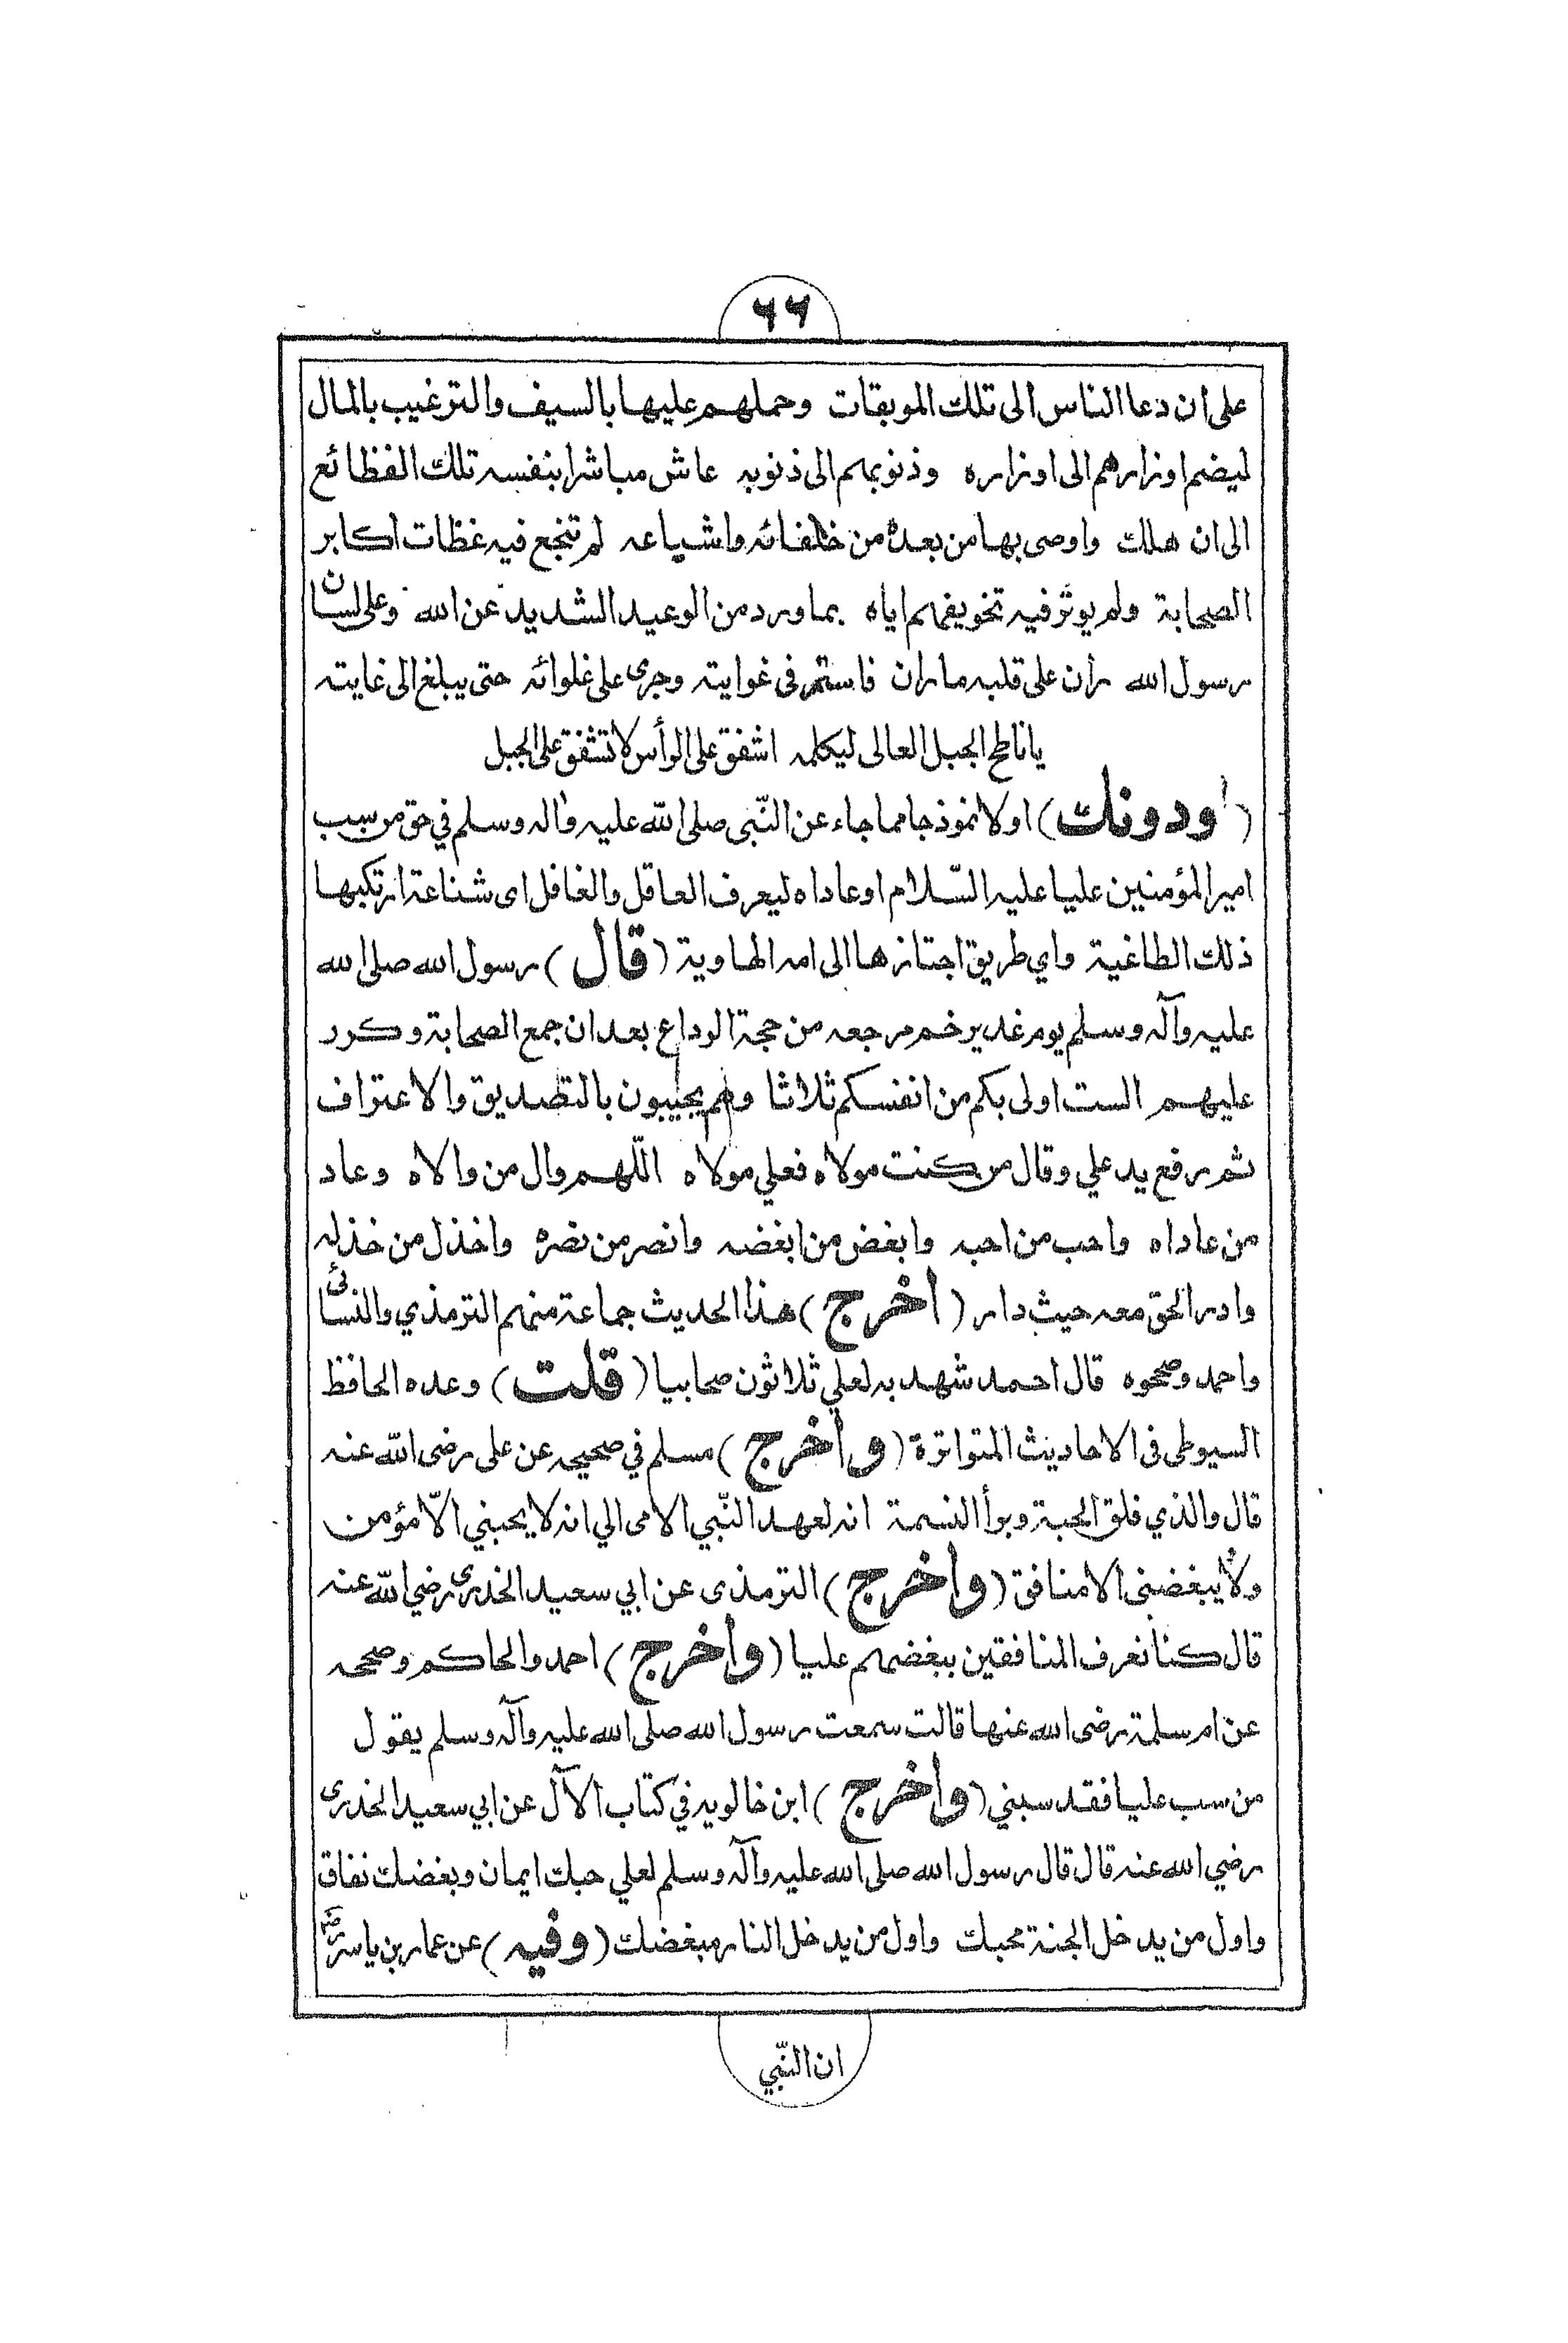 ٦٦
على ان دعا الناس الى تلك الموبقات وحملهم عليها بالسيف والترغيب بالمال
ليضم اوزارهم الى اوزاره وذنوبهم الى ذنوبه عاش مباشرا بنفسه تلك الفظائع
الى ان هلك واوصى بها من بعده من خلفائه واشياعه لم تنجع فيه عظات اكابر
الصحابة ولم يوثر فيه تخويفهم اياه بما ورد من الوعيد الشديد عن الله وعلى لسان
رسول الله ران على قلبه ما ران فاستمر فى غوايته وجرى على غلوائه حتى يبلغ الى غايته
يا ناطح الجبل العالى ليكلمه اشفق على الرأس لا تشفق على الجبل
(ودونك) اولا نموذجا مما جاء عن النّبى صلى الله عليه واله وسلم في حق من سب
امير المؤمنين عليا عليه السّلام او عاداه ليعرف العاقل والغافل اى شناعة ارتكبها
ذلك الطاغية واي طريق اجتازها الى امه الهاوية (قال) رسول الله صلى الله
عليه وآله وسلم يوم غدير خم مرجعه من حجة الوداع بعد ان جمع الصحابة وكرر
عليهم الست اولى بكم من انفسكم ثلاثا وهم يجيبون بالتصديق والاعتراف
ثم رفع يد علي وقال من كنت مولاه فعلي مولاه اللّهم وال من والاه وعاد
من عاداه واحب من احبه وابغض من ابغضه وانصر من نصره واخذل من خذله
وادر الحق معه حيث دار (أخرج) هذا الحديث جماعة منهم الترمذي والنسائى
واحمد وصححوه قال احمد شهد به لعلي ثلاثون صحابيا (قلت) وعده الحافظ
السيوطى فى الاحاديث المتواترة (وأخرج) مسلم في صحيحه عن على رضى الله عنه
قال والذي فلق الحبة وبرأ النسمة انه لعهد النّبي الامى الي انه لا يحبني الّا مؤمن
ولا يبغضنى الا منافق (وأخرج) الترمذى عن ابي سعيد الخدرى رضي الله عنه
قال كنا نعرف المنافقين ببغضهم عليا (وأخرج) احمد والحاكم وصححه
عن ام سلمة رضى الله عنها قالت سمعت رسول الله صلى الله عليه وآله وسلم يقول
من سب عليا فقد سبني (وأخرج) ابن خالويه في كتاب الآل عن ابي سعيد الخدرى
رضي الله عنه قال قال رسول الله صلى الله عليه وآله وسلم لعلي حبك ايمان وبغضك نفاق
واول من يدخل الجنة محبك واول من يدخل النار مبغضك (وفيه) عن عمار بن ياسر رض
ان النّبي